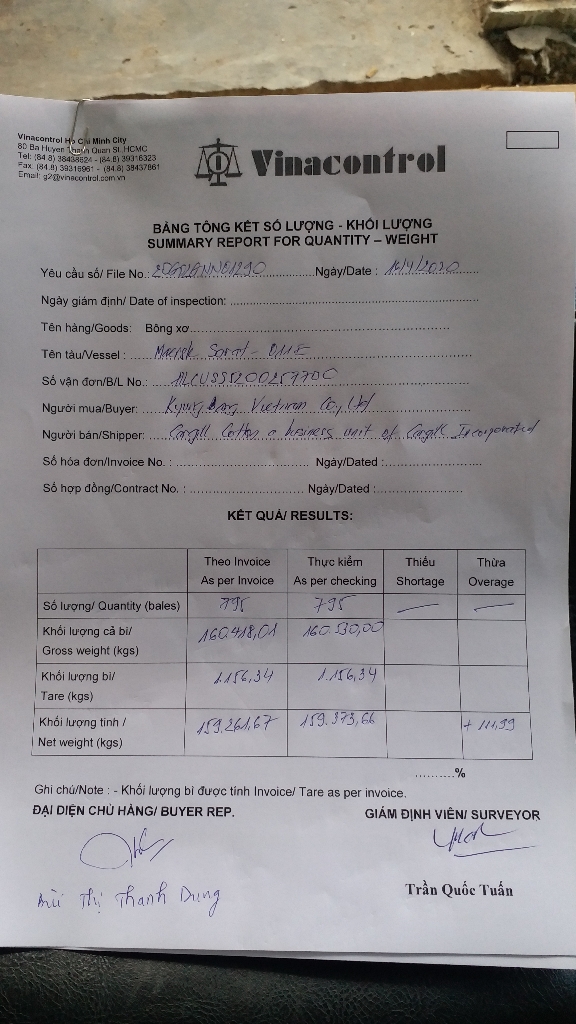 Vinacontrol Ho Chi Minh City
80 Ba Huyen Thanh Quan St. HCMC
Tel: (84.8) 38438624 - (84.8) 39316323
Fax: (84.8) 39316961 - (84.8) 38437861
Email: g2@vinacontrol.com.vn
Vinacontrol
BẢNG TỔNG KẾT SỐ LƯỢNG - KHỐI LƯỢNG
SUMMARY REPORT FOR QUANTITY – WEIGHT
Yêu cầu số/ File No.: Ngày/Date : /4/2020
Ngày giám định/ Date of inspection:
Tên hàng/Goods: Bông xơ
Tên tàu/Vessel : Maersk
Số vận đơn/B/L No.:
Người mua/Buyer: Kyungbang Vietnam Co, Ltd
Người bán/Shipper: Cargill Cotton a business unit of Cargill Incorporated
Số hóa đơn/Invoice No. : Ngày/Dated :
Số hợp đồng/Contract No. : Ngày/Dated :
KẾT QUẢ/ RESULTS:
Theo Invoice Thực kiểm Thiếu Thừa
As per Invoice As per checking Shortage Overage
Số lượng/ Quantity (bales) 795 795 — —
Khối lượng cả bì/ 160.418,01 160.530,00
Gross weight (kgs)
Khối lượng bì/ 1.156,34 1.156,34
Tare (kgs)
Khối lượng tịnh / 159.261,67 159.373,66 + 111,99
Net weight (kgs)
..........%
Ghi chú/Note : - Khối lượng bì được tính Invoice/ Tare as per invoice.
ĐẠI DIỆN CHỦ HÀNG/ BUYER REP. GIÁM ĐỊNH VIÊN/ SURVEYOR
Bùi Thị Thanh Dung Trần Quốc Tuấn